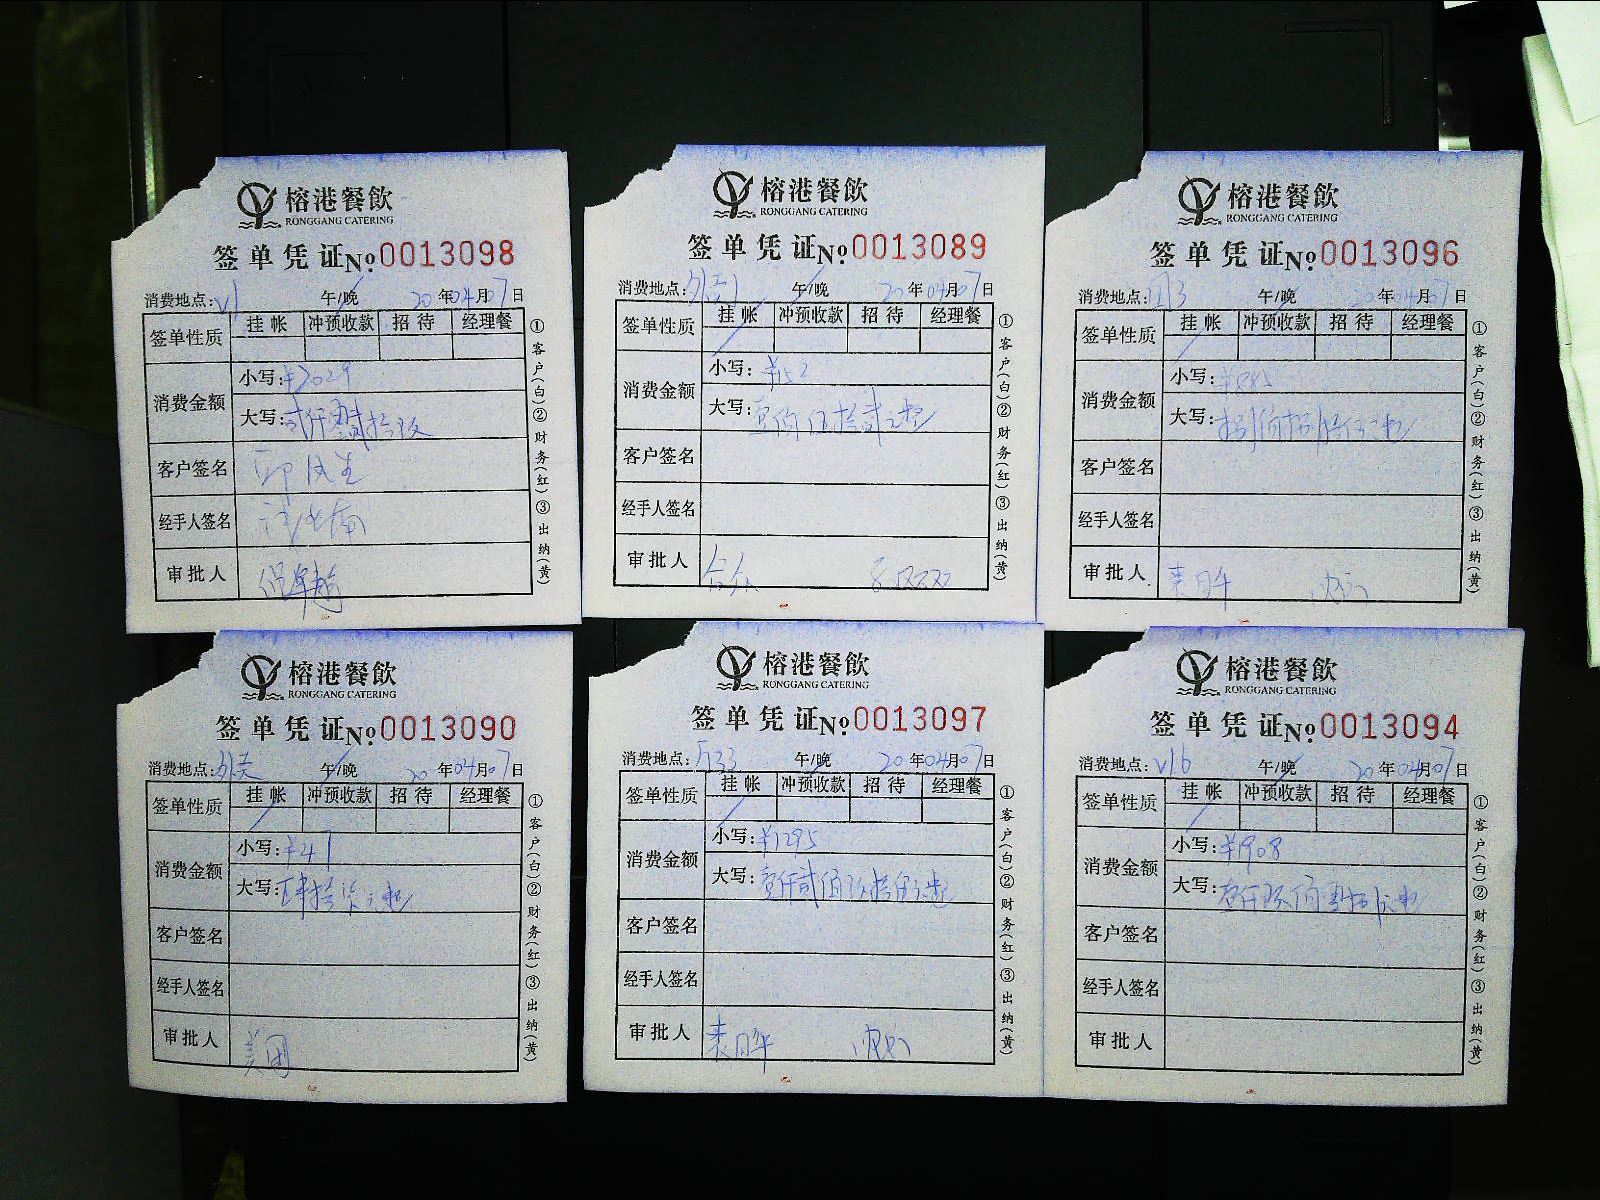 榕港餐飲
RONGGANG CATERING
签单凭证 No.0013098
消费地点: V1 午/晚 20年04月07日
签单性质 挂帐 冲预收款 招待 经理餐
消费金额 小写: ¥2029
大写:
客户签名
经手人签名
审批人
①客户(白)②财务(红)③出纳(黄)
榕港餐飲
RONGGANG CATERING
签单凭证 No.0013089
消费地点: 午/晚 20年04月07日
签单性质 挂帐 冲预收款 招待 经理餐
消费金额 小写: ¥152
大写: 壹佰伍拾贰元整
客户签名
经手人签名
审批人
①客户(白)②财务(红)③出纳(黄)
榕港餐飲
RONGGANG CATERING
签单凭证 No.0013096
消费地点: 午/晚 20年04月07日
签单性质 挂帐 冲预收款 招待 经理餐
消费金额 小写: ¥885
大写: 捌佰捌拾伍元整
客户签名
经手人签名
审批人
①客户(白)②财务(红)③出纳(黄)
榕港餐飲
RONGGANG CATERING
签单凭证 No.0013090
消费地点: 外卖 午/晚 20年04月07日
签单性质 挂帐 冲预收款 招待 经理餐
消费金额 小写: ¥47
大写: 肆拾柒元整
客户签名
经手人签名
审批人 美团
①客户(白)②财务(红)③出纳(黄)
榕港餐飲
RONGGANG CATERING
签单凭证 No.0013097
消费地点: 午/晚 20年04月07日
签单性质 挂帐 冲预收款 招待 经理餐
消费金额 小写: ¥1295
大写: 壹仟贰佰玖拾伍元整
客户签名
经手人签名
审批人
①客户(白)②财务(红)③出纳(黄)
榕港餐飲
RONGGANG CATERING
签单凭证 No.0013094
消费地点: V16 午/晚 20年04月07日
签单性质 挂帐 冲预收款 招待 经理餐
消费金额 小写: ¥1908
大写: 壹仟玖佰零捌元整
客户签名
经手人签名
审批人
①客户(白)②财务(红)③出纳(黄)